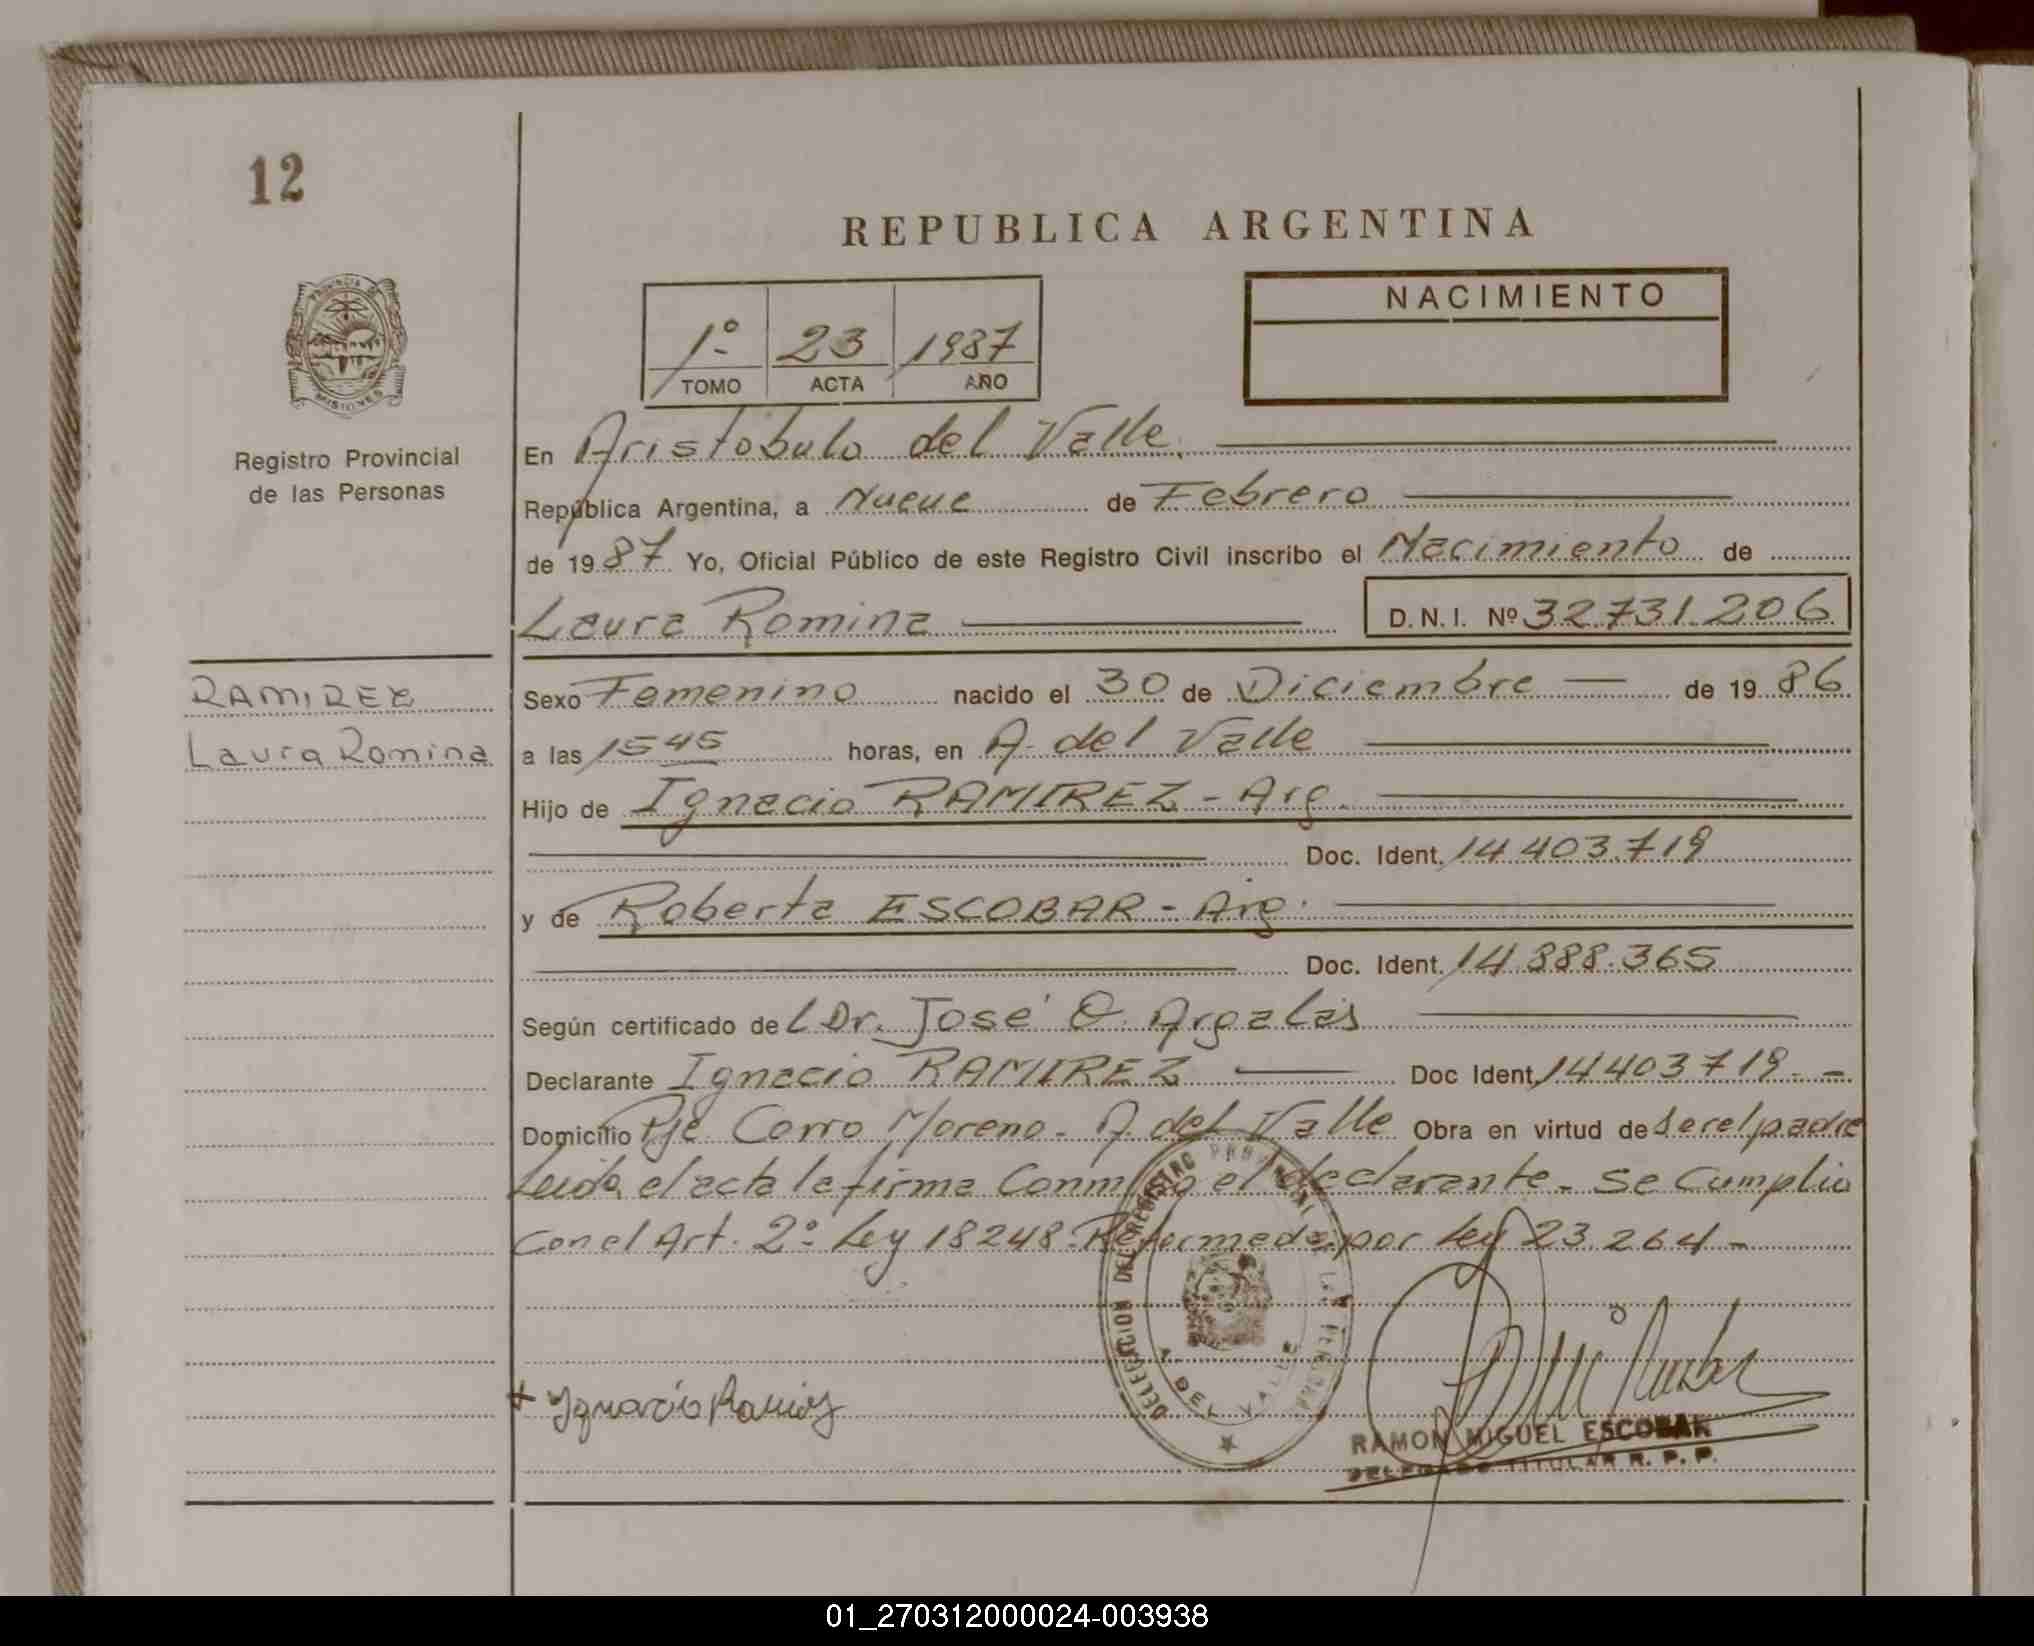 12
REPUBLICA ARGENTINA
PROVINCIA DE
MISIONES
Registro Provincial
de las Personas
1º 23 1987
TOMO ACTA AÑO
NACIMIENTO
En Aristóbulo del Valle.
República Argentina, a Nueve de Febrero
de 1987 Yo, Oficial Público de este Registro Civil inscribo el Nacimiento de
Laura Romina D.N.I. Nº 32.731.206
RAMIREZ
Laura Romina
Sexo Femenino nacido el 30 de Diciembre de 1986
a las 1545 horas, en A. del Valle
Hijo de Ignacio RAMIREZ - Arg.
Doc. Ident. 14.403.719
y de Roberta ESCOBAR - Arg.
Doc. Ident. 14.888.365
Según certificado del Dr. José O.
Declarante Ignacio RAMIREZ Doc Ident. 14.403.719 -
Domicilio Pje. Cerro Moreno - A. del Valle Obra en virtud de ser el padre
Leida el acta la firma Conmigo el declarante - Se Cumplio
Con el Art. 2º Ley 18248 - Reformada por Ley 23.264 -
DELEGACION DEL REGISTRO PROVINCIAL DE LAS PERSONAS
A. DEL VALLE
Ignacio Ramirez
RAMON MIGUEL ESCOBAR
DELEGADO TITULAR R. P. P.
01_270312000024-003938